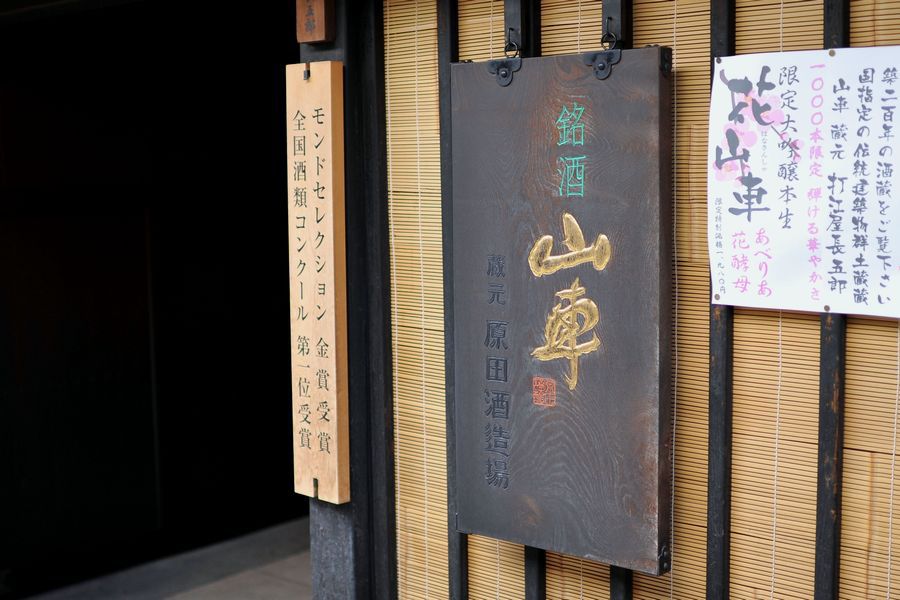 築二百年の酒蔵をご覧下さい
国指定の伝統建築物群土蔵蔵
山車 蔵元 打江屋長五郎
1000本限定 弾ける華やかさ
限定大吟醸本生
あべりあ
花酵母
はなさんしゃ
花山車
銘酒
山車
蔵元 原田酒造場
モンドセレクション 金賞受賞
全国酒類コンクール 第一位受賞
五郎